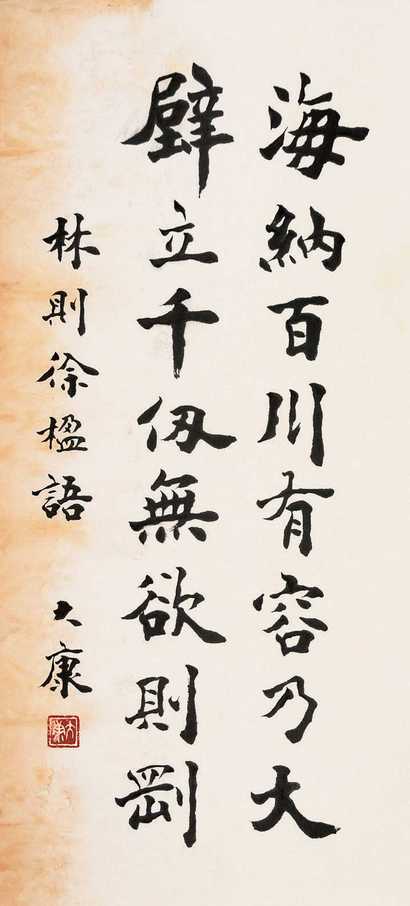 海納百川有容乃大
壁立千仭無欲則剛
林則徐楹語 大康
大康